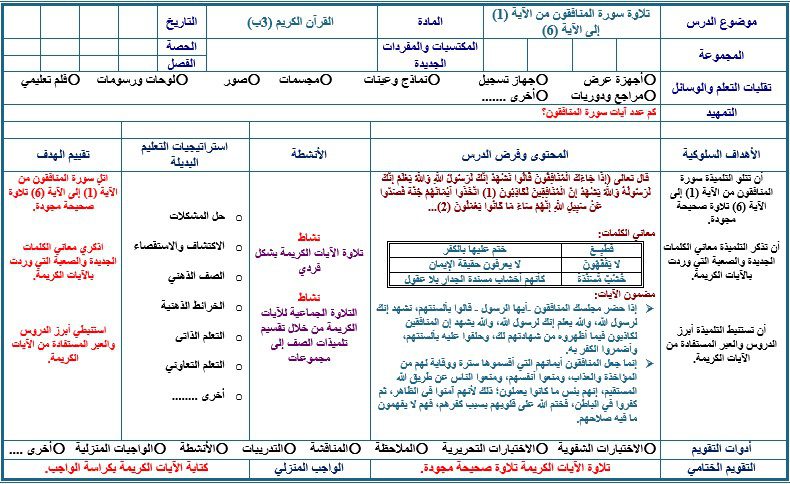 موضوع الدرس
تلاوة سورة المنافقون من الآية (1)
إلى الآية (6)
المادة
القرآن الكريم (3ب)
التاريخ
المجموعة
المكتسبات والمفردات
الجديدة
الحصة
الفصل
تقنيات التعلم والوسائل
Oأجهزة عرض Oجهاز تسجيل Oنماذج وعينات Oمجسمات Oصور Oلوحات ورسومات Oفلم تعليمي
Oمراجع ودوريات Oأخرى .......
التمهيد
كم عدد آيات سورة المنافقون؟
الأهداف السلوكية
المحتوى وفرض الدرس
الأنشطة
استراتيجيات التعليم
البديلة
تقييم الهدف
أن تتلو التلميذة سورة
المنافقون من الآية (1) إلى
الآية (6) تلاوة صحيحة
مجودة.
أن تذكر التلميذة معاني الكلمات
الجديدة والصعبة التي وردت
بالآيات الكريمة.
أن تستنبط التلميذة أبرز
الدروس والعبر المستفادة من
الآيات الكريمة.
قال تعالى (إِذَا جَاءَكَ الْمُنَافِقُونَ قَالُوا نَشْهَدُ إِنَّكَ لَرَسُولُ اللَّهِ وَاللَّهُ يَعْلَمُ إِنَّكَ
لَرَسُولُهُ وَاللَّهُ يَشْهَدُ إِنَّ الْمُنَافِقِينَ لَكَاذِبُونَ (1) اتَّخَذُوا أَيْمَانَهُمْ جُنَّةً فَصَدُّوا
عَنْ سَبِيلِ اللَّهِ إِنَّهُمْ سَاءَ مَا كَانُوا يَعْمَلُونَ (2)...
معاني الكلمات:
فَطُبِعَ ختم عليها بالكفر
لا يَفْقَهُونَ لا يعرفون حقيقة الإيمان
خُشُبٌ مُسَنَّدَةٌ كأنهم أخشاب مسندة الجدار بلا عقول
مضمون الآيات:
إذا حضر مجلسك المنافقون -أيها الرسول- قالوا بألسنتهم، نشهد إنك
لرسول الله، والله يعلم إنك لرسول الله، والله يشهد إن المنافقين
لكاذبون فيما أظهروه من شهادتهم لك، وحلفوا عليه بألسنتهم،
وأضمروا الكفر به.
إنما جعل المنافقون أيمانهم التي أقسموها سترة ووقاية لهم من
المؤاخذة والعذاب، ومنعوا أنفسهم، ومنعوا الناس عن طريق الله
المستقيم، إنهم بئس ما كانوا يعملون؛ ذلك لأنهم آمنوا في الظاهر، ثم
كفروا في الباطن، فختم الله على قلوبهم بسبب كفرهم، فهم لا يفهمون
ما فيه صلاحهم.
نشاط
تلاوة الآيات الكريمة بشكل
فردي
نشاط
التلاوة الجماعية للآيات
الكريمة من خلال تقسيم
تلميذات الصف إلى
مجموعات
o حل المشكلات
o الاكتشاف والاستقصاء
o الصف الذهني
o الخرائط الذهنية
o التعلم الذاتى
o التعلم التعاوني
o أخرى ........
اتل سورة المنافقون من
الآية (1) إلى الآية (6) تلاوة
صحيحة مجودة.
اذكري معاني الكلمات
الجديدة والصعبة التي وردت
بالآيات الكريمة.
استنبطي أبرز الدروس
والعبر المستفادة من الآيات
الكريمة.
أدوات التقويم
Oالاختبارات الشفوية Oالاختبارات التحريرية Oالملاحظة Oالمناقشة Oالتدريبات Oالأنشطة Oالواجبات المنزلية Oأخرى ....
التقويم الختامي
تلاوة الآيات الكريمة تلاوة صحيحة مجودة.
الواجب المنزلي
كتابة الآيات الكريمة بكراسة الواجب.